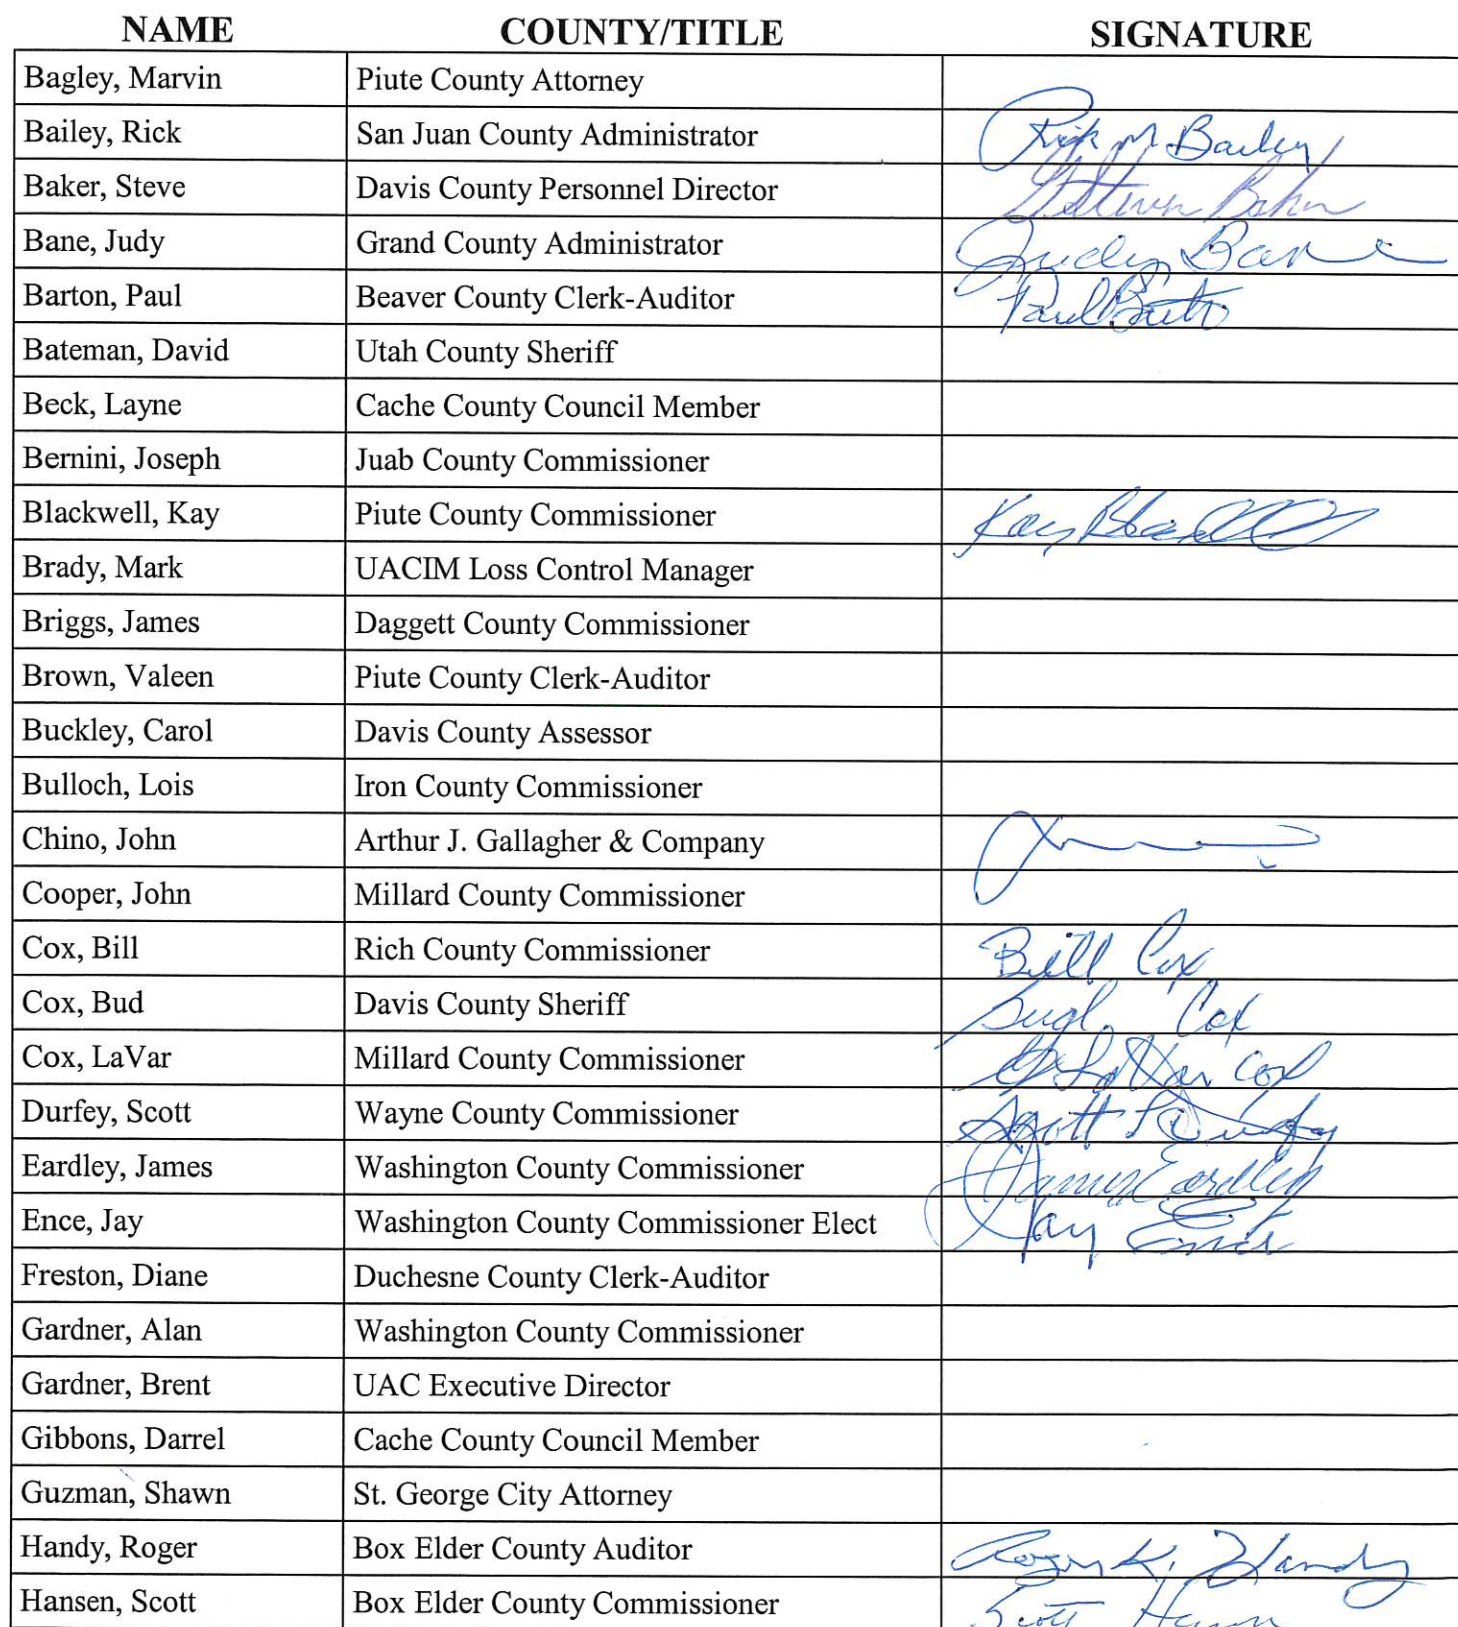 NAME COUNTY/TITLE SIGNATURE
Bagley, Marvin Piute County Attorney
Bailey, Rick San Juan County Administrator Rick M Bailey
Baker, Steve Davis County Personnel Director
Bane, Judy Grand County Administrator Judy Bane
Barton, Paul Beaver County Clerk-Auditor Paul Barton
Bateman, David Utah County Sheriff
Beck, Layne Cache County Council Member
Bernini, Joseph Juab County Commissioner
Blackwell, Kay Piute County Commissioner Kay Blackwell
Brady, Mark UACIM Loss Control Manager
Briggs, James Daggett County Commissioner
Brown, Valeen Piute County Clerk-Auditor
Buckley, Carol Davis County Assessor
Bulloch, Lois Iron County Commissioner
Chino, John Arthur J. Gallagher & Company
Cooper, John Millard County Commissioner
Cox, Bill Rich County Commissioner Bill Cox
Cox, Bud Davis County Sheriff Bud Cox
Cox, LaVar Millard County Commissioner LaVar Cox
Durfey, Scott Wayne County Commissioner Scott Durfey
Eardley, James Washington County Commissioner James Eardley
Ence, Jay Washington County Commissioner Elect Jay Ence
Freston, Diane Duchesne County Clerk-Auditor
Gardner, Alan Washington County Commissioner
Gardner, Brent UAC Executive Director
Gibbons, Darrel Cache County Council Member
Guzman, Shawn St. George City Attorney
Handy, Roger Box Elder County Auditor Roger K. Handy
Hansen, Scott Box Elder County Commissioner Scott Hansen